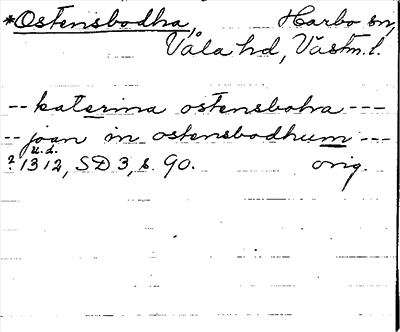 *Ostensbodha, Harbo sn,
Våla hd, Västm. l.
-- katerina ostensboha ---
-- joan in ostensbodhum ---
u.d.
? 1312, SD 3, s. 90. orig.